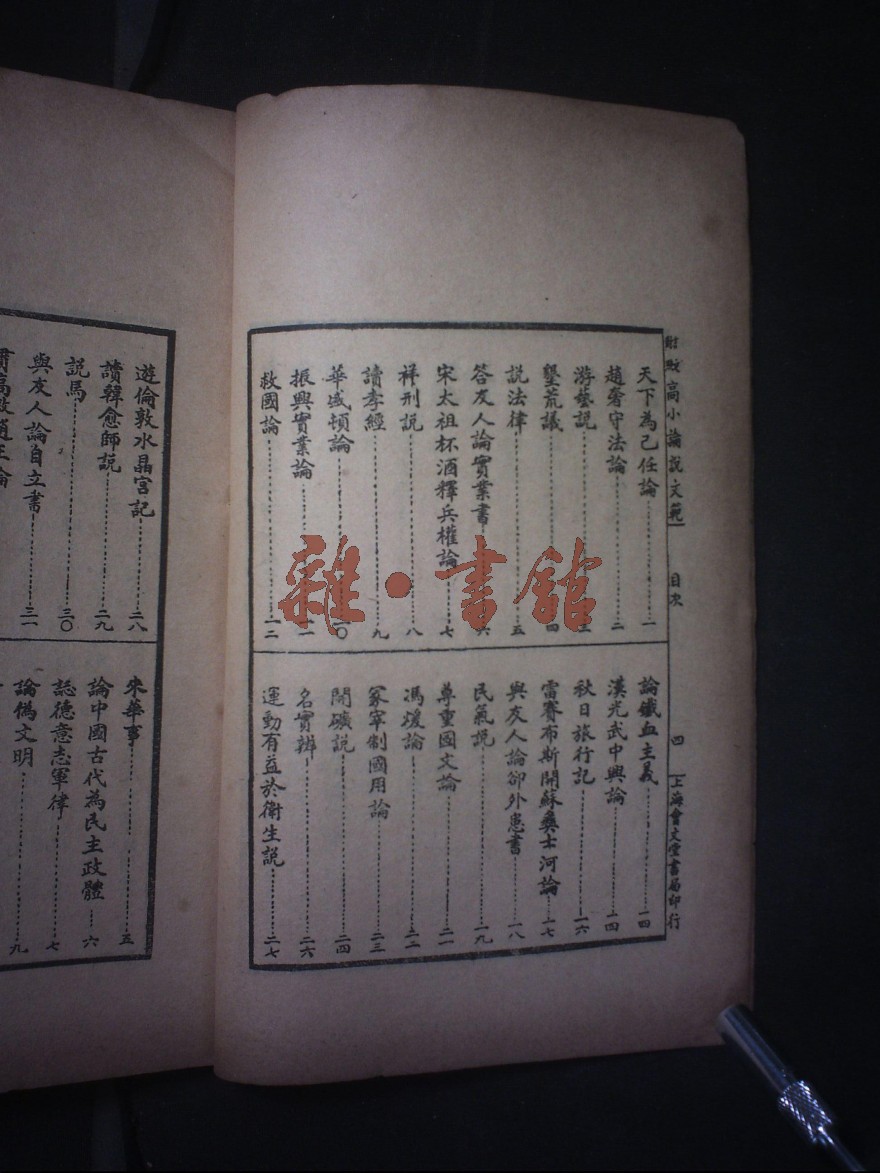 高小論說文範
目次
四
上海會文堂書局印行
天下為己任論 一
趙奢守法論 二
游藝說 三
墾荒議 四
說法律 五
答友人論實業書 六
宋太祖杯酒釋兵權論 七
祥刑說 八
讀孝經 九
華盛頓論 一〇
振興實業論 一一
救國論 一二
論鐵血主義 一四
漢光武中興論 一四
秋日旅行記 一六
雷賽布斯開蘇彝士河論 一七
與友人論卻外患書 一八
民氣說 一九
尊重國文論 二一
馮煖論 二二
冢宰制國用論 二三
開礦說 二四
名實辨 二六
運動有益於衛生說 二七
遊倫敦水晶宮記 二八
讀韓愈師說 二九
說馬 三〇
與友人論自立書 三一
來華事 五
論中國古代為民主政體 六
誌德意志軍律 七
論偽文明 九
雜·書館